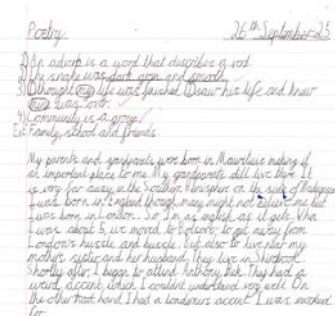 Poetry 26th September 23
1) An adverb is a word that describes a verb
2) The snake was dark green and smooth.
3) I thought my life was finished I saw his life and knew
mine was over.
4) Community is a group
Ext Family, school and friends.
My parents and grandparents were born in Mauritius making it
an important place to me. My grandparents still live there. It
is very far away in the Southern Hemisphere on the side of Madagascar
I was born in England though many might not believe me but
I was born in London. So I'm as english as it gets. When
I was about 5, we moved to to get away from
London's hussle and bussle, but also to live near my
mothers sister and her husband. They live in
Shortly after I began to attend They had a
weird accent which I couldn't understand very well. On
the other hand I had a londoner's accent I was mocked
for